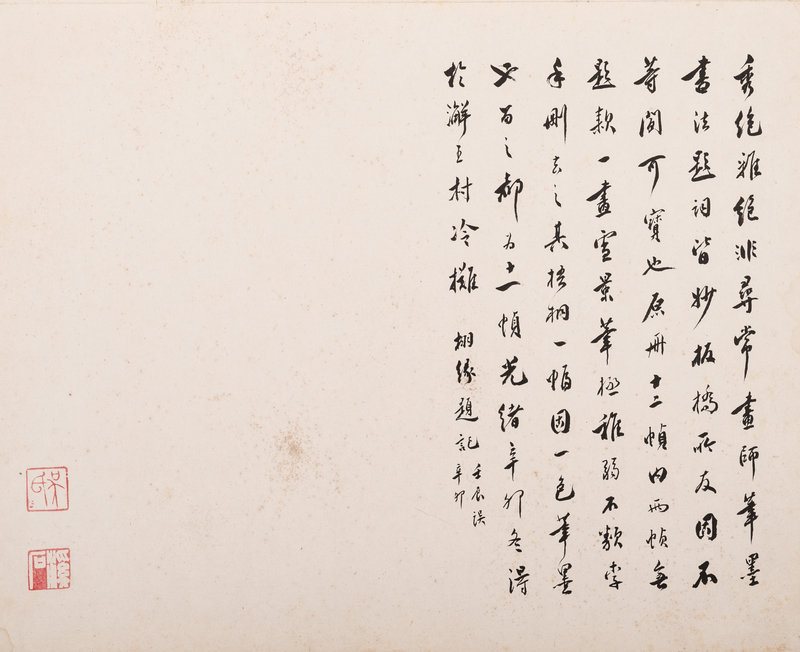 秀絶雅絶非尋常畫師筆墨
書法題詞皆妙板橋所友固不
等閒可寶也原冊十二幀內兩幀無
題款一畫雪景筆極稚弱不類李
手刪去之其梧桐一幅固一色筆墨
必留之都為十一幀光緒辛卯冬得
於澥王村冷攤 栩緣題記
壬辰誤
辛卯